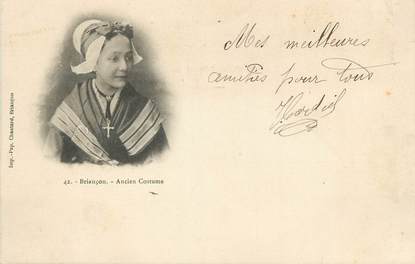 Mes meilleures
amitiés pour tous
Imp.-Pap. Briançon
42. - Briançon. - Ancien Costume